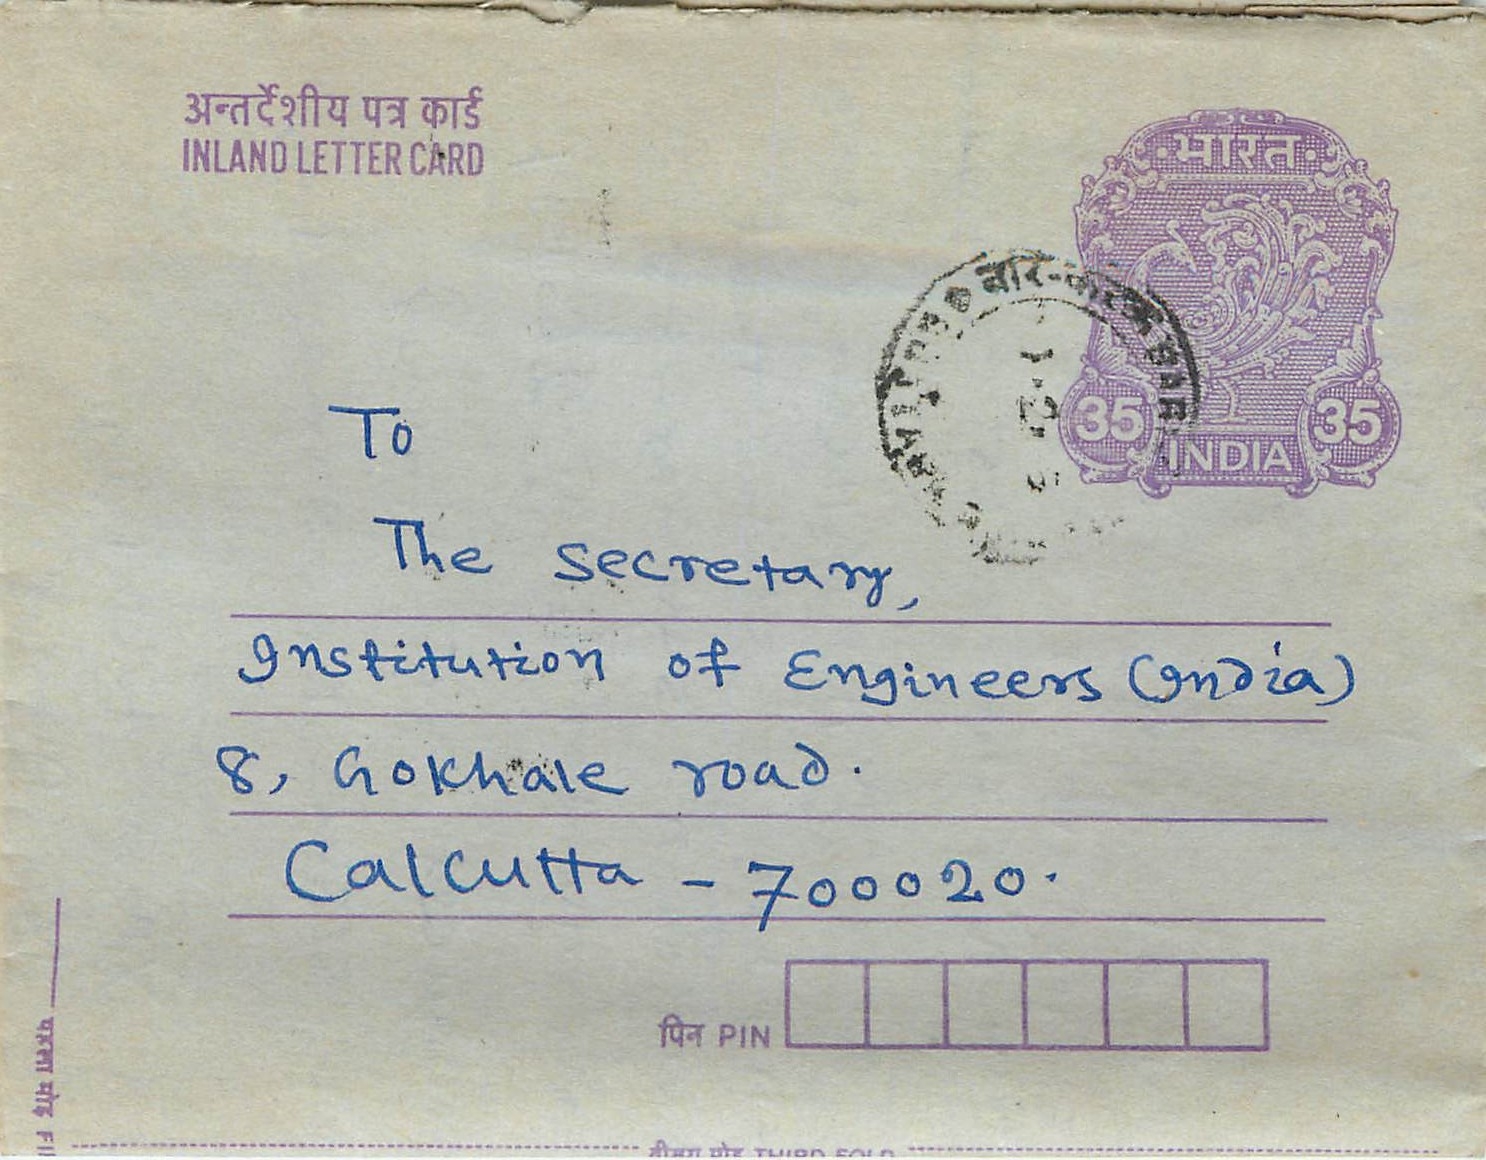 अन्तर्देशीय पत्र कार्ड
INLAND LETTER CARD
·भारत·
35 35
INDIA
To
The Secretary,
Institution of Engineers (India)
8, Gokhale road.
Calcutta - 700020.
पिन PIN
पहला मोड़
THIRD FOLD